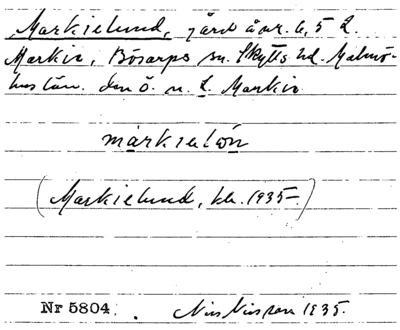 Markielund, gård å avs. 6, 5 L.
Markie, Bösarps sn. Skytts hd. Malmö-
hus län. den ö. n. L. Markie
markielón
(Markielund, kh. 1935-)
Nr 5804. Nils Nilsson 1935.